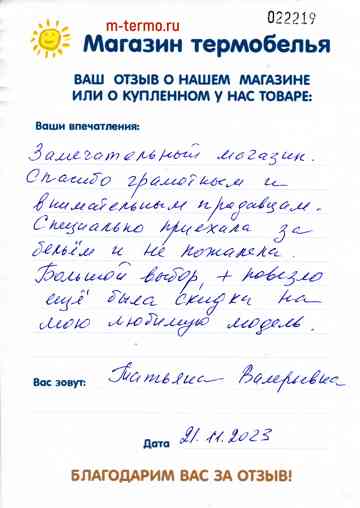 m-termo.ru
022219
Магазин термобелья
ВАШ ОТЗЫВ О НАШЕМ МАГАЗИНЕ
ИЛИ О КУПЛЕННОМ У НАС ТОВАРЕ:
Ваши впечатления:
Замечательный магазин.
Спасибо грамотным и
внимательным продавцам.
Специально приехала за
бельём и не пожалела.
Большой выбор, + повезло
ещё была скидка на
мою любимую модель.
Вас зовут: Татьяна Валерьевна
Дата 21.11.2023
БЛАГОДАРИМ ВАС ЗА ОТЗЫВ!